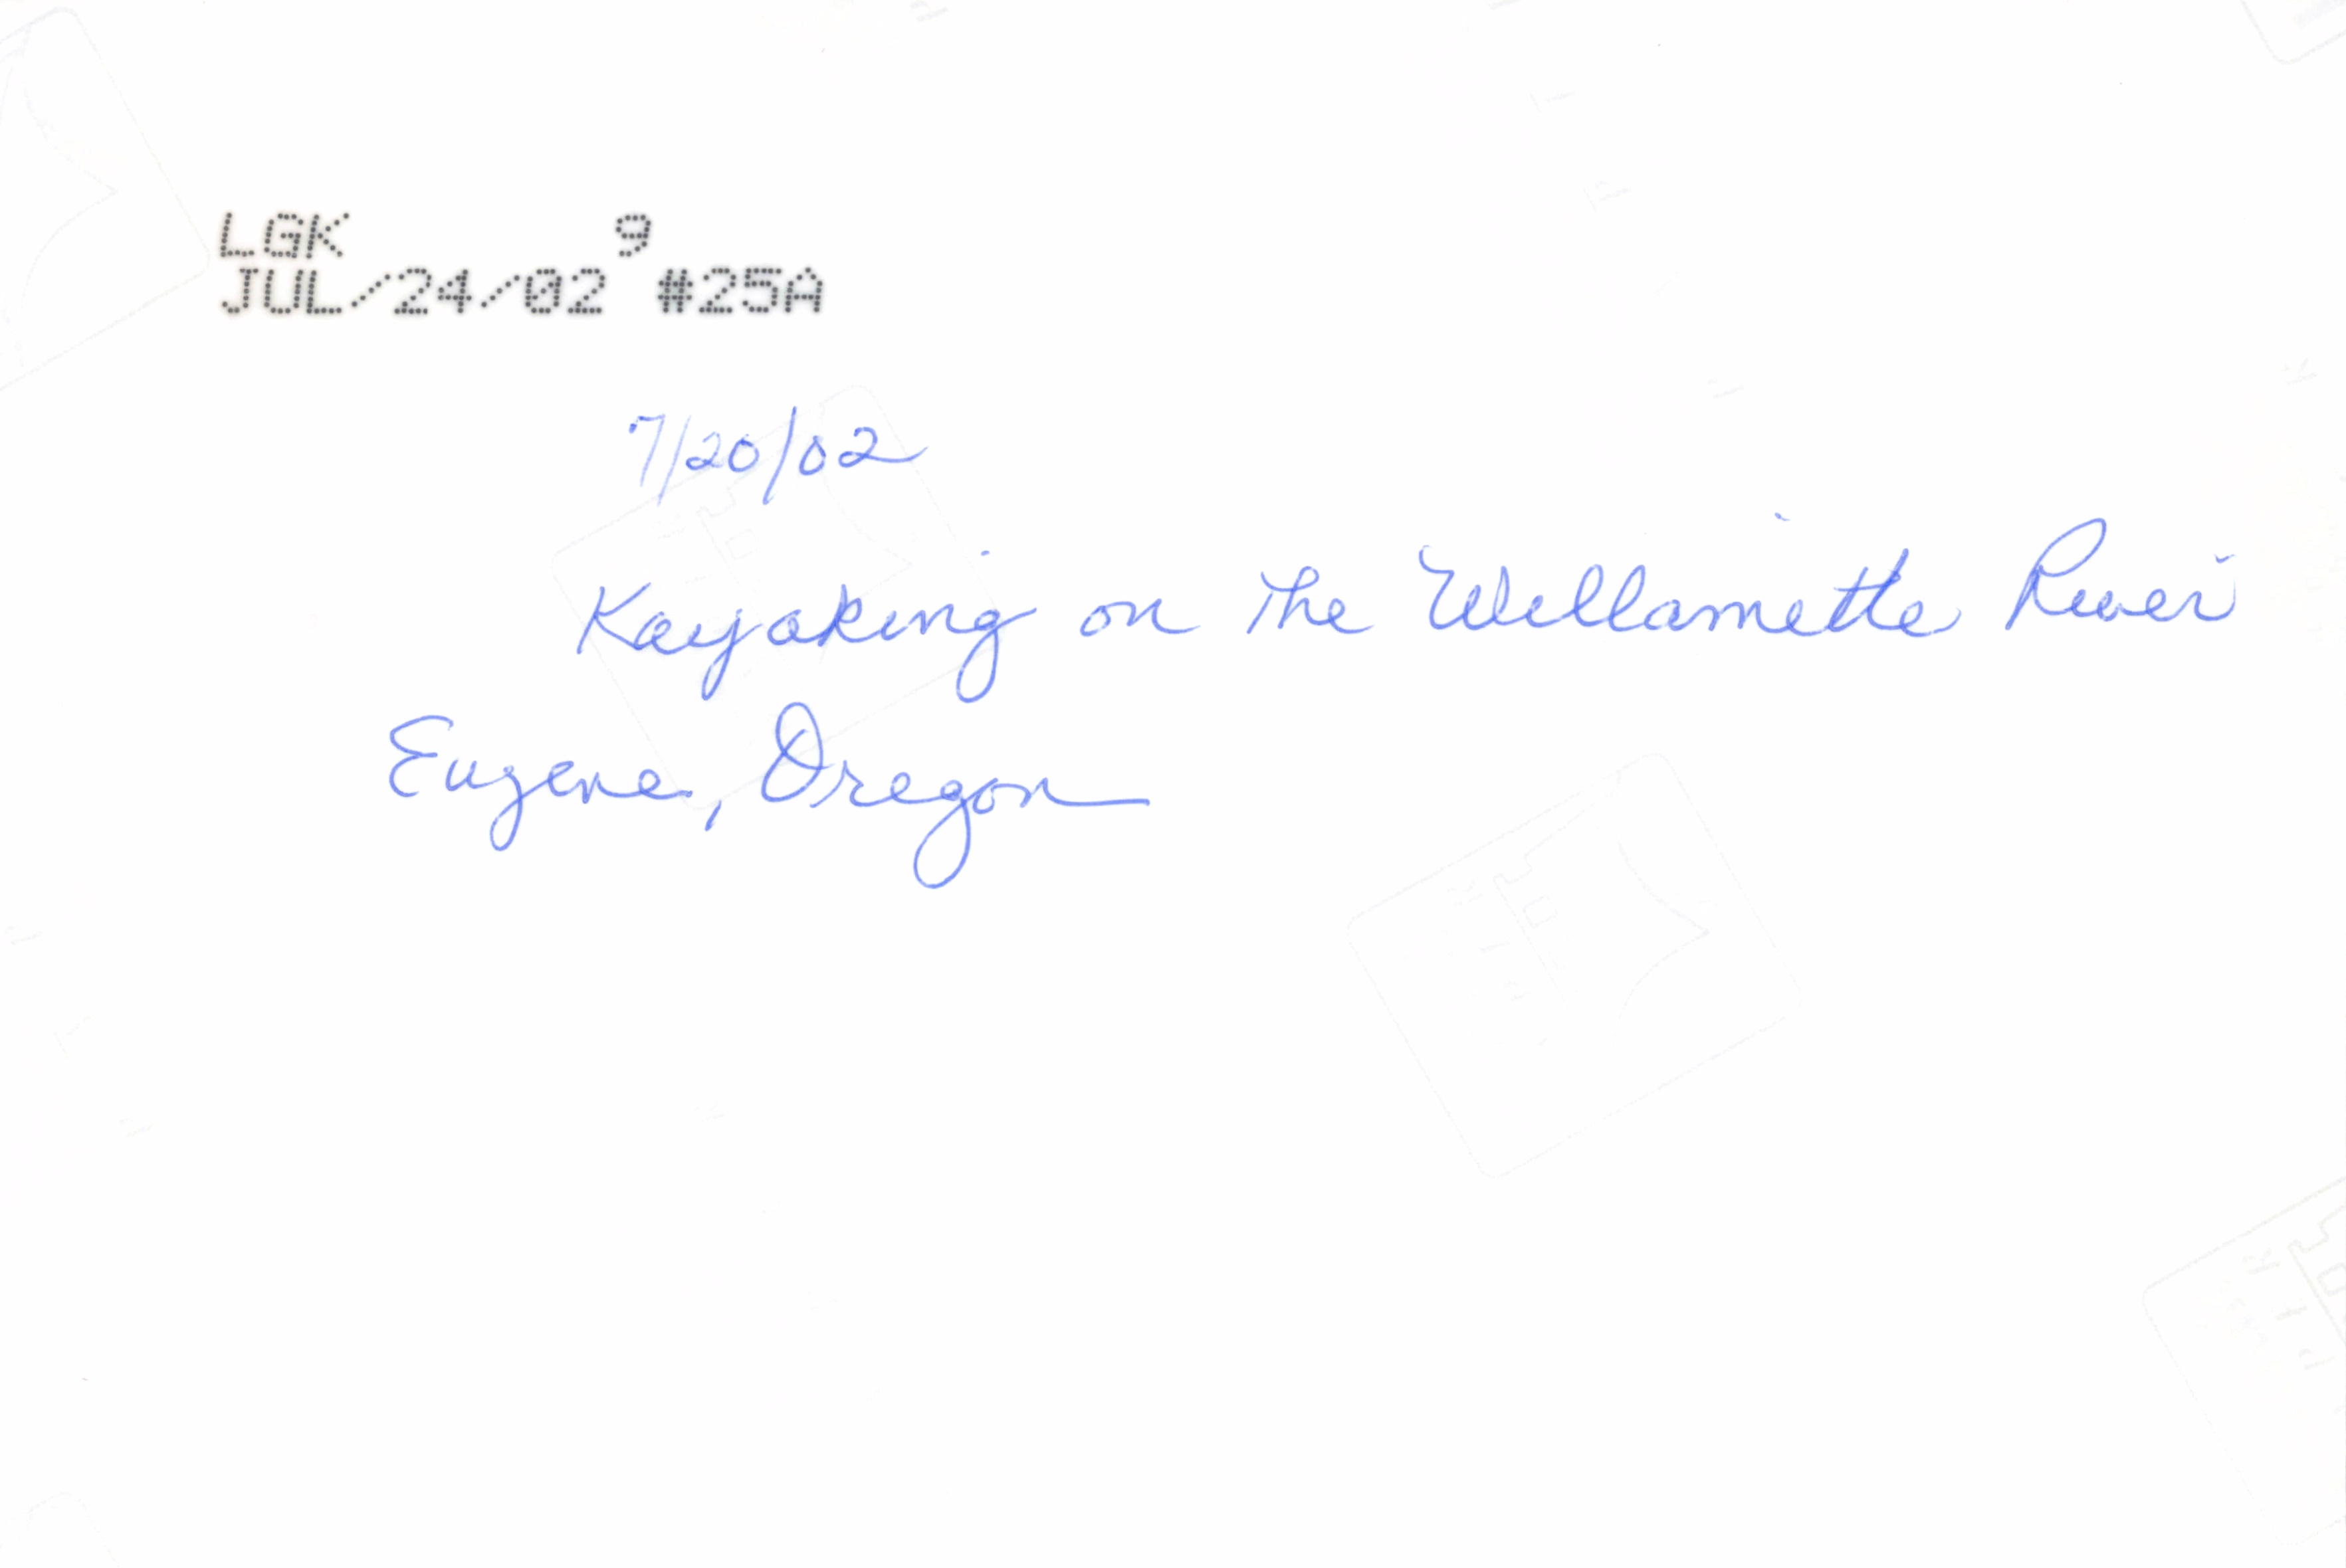 LGK 9
JUL/24/02 #25A
7/20/02
Kayaking on the Willamette River
Eugene, Oregon